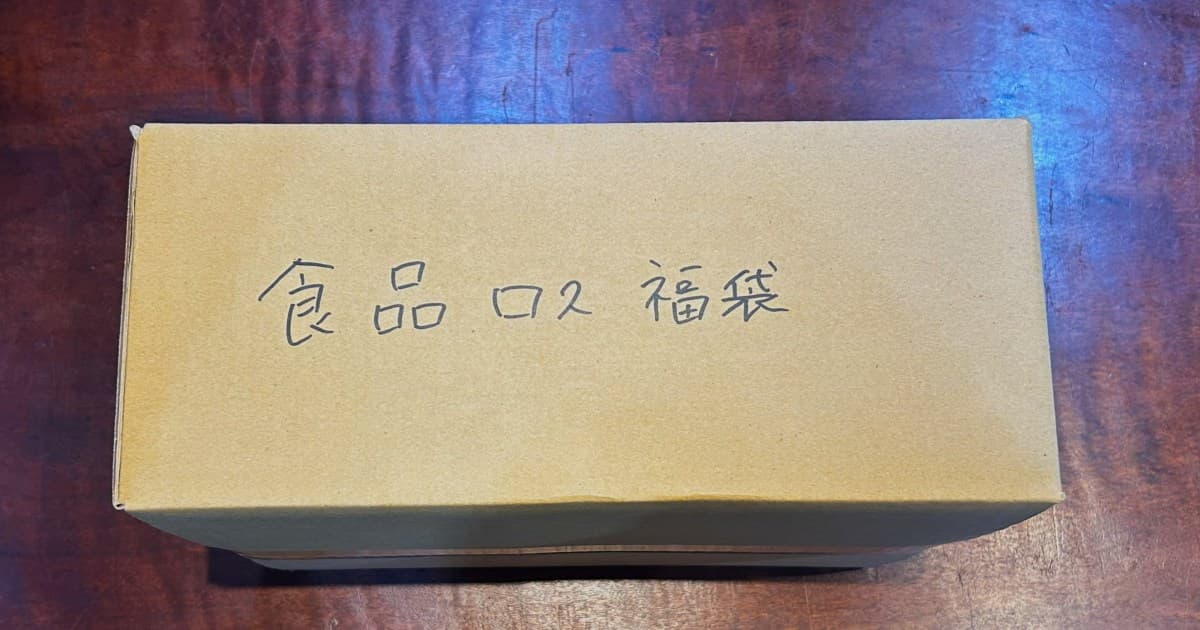 食品ロス福袋